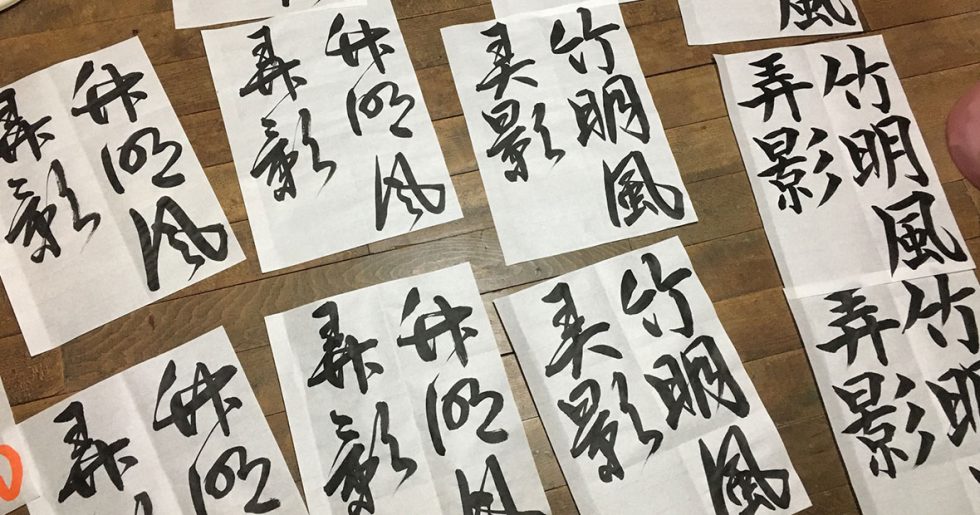 風
竹明風
弄影
竹明風
弄影
竹明風
弄影
竹明風
弄影
竹明
弄影
竹明風
弄影
竹明風
弄影
竹明
弄